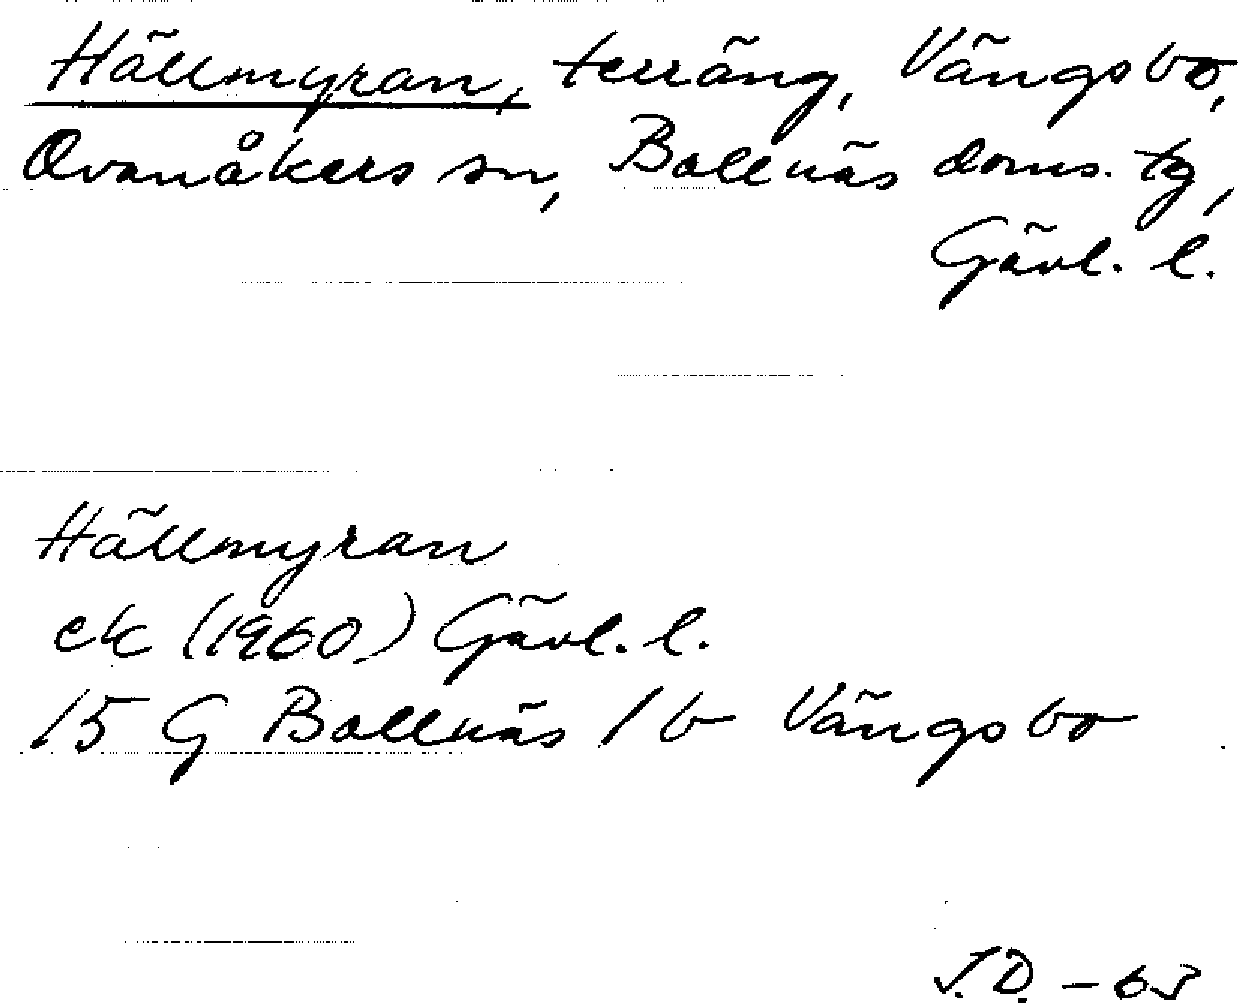 Hällmyran, terräng, Vängsbo,
Ovanåkers sn, Bollnäs doms. tg,
Gävl. l.
Hällmyran
ek (1960) Gävl. l.
15 G Bollnäs 1 b Vängsbo
J.D. - 63